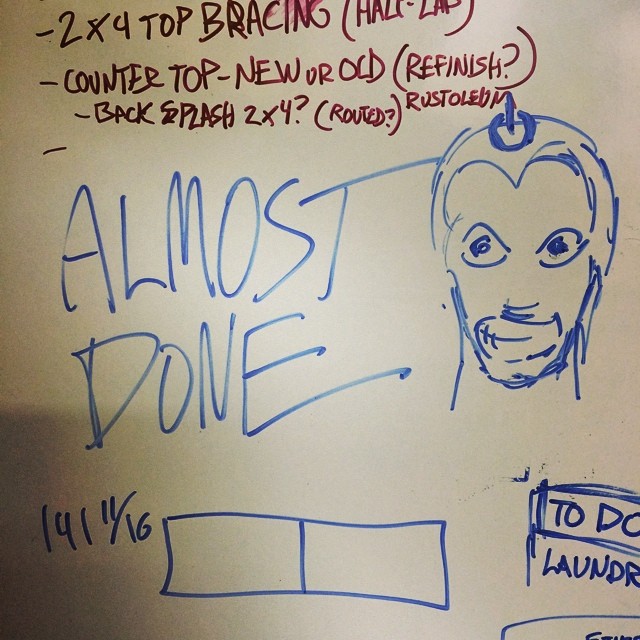 - 2x4 TOP BRACING (HALF-LAP)
- COUNTER TOP - NEW OR OLD (REFINISH?)
RUSTOLEUM
- BACK SPLASH 2x4? (ROUTED?)
-
ALMOST
DONE
141 11/16
TO DO
LAUNDR